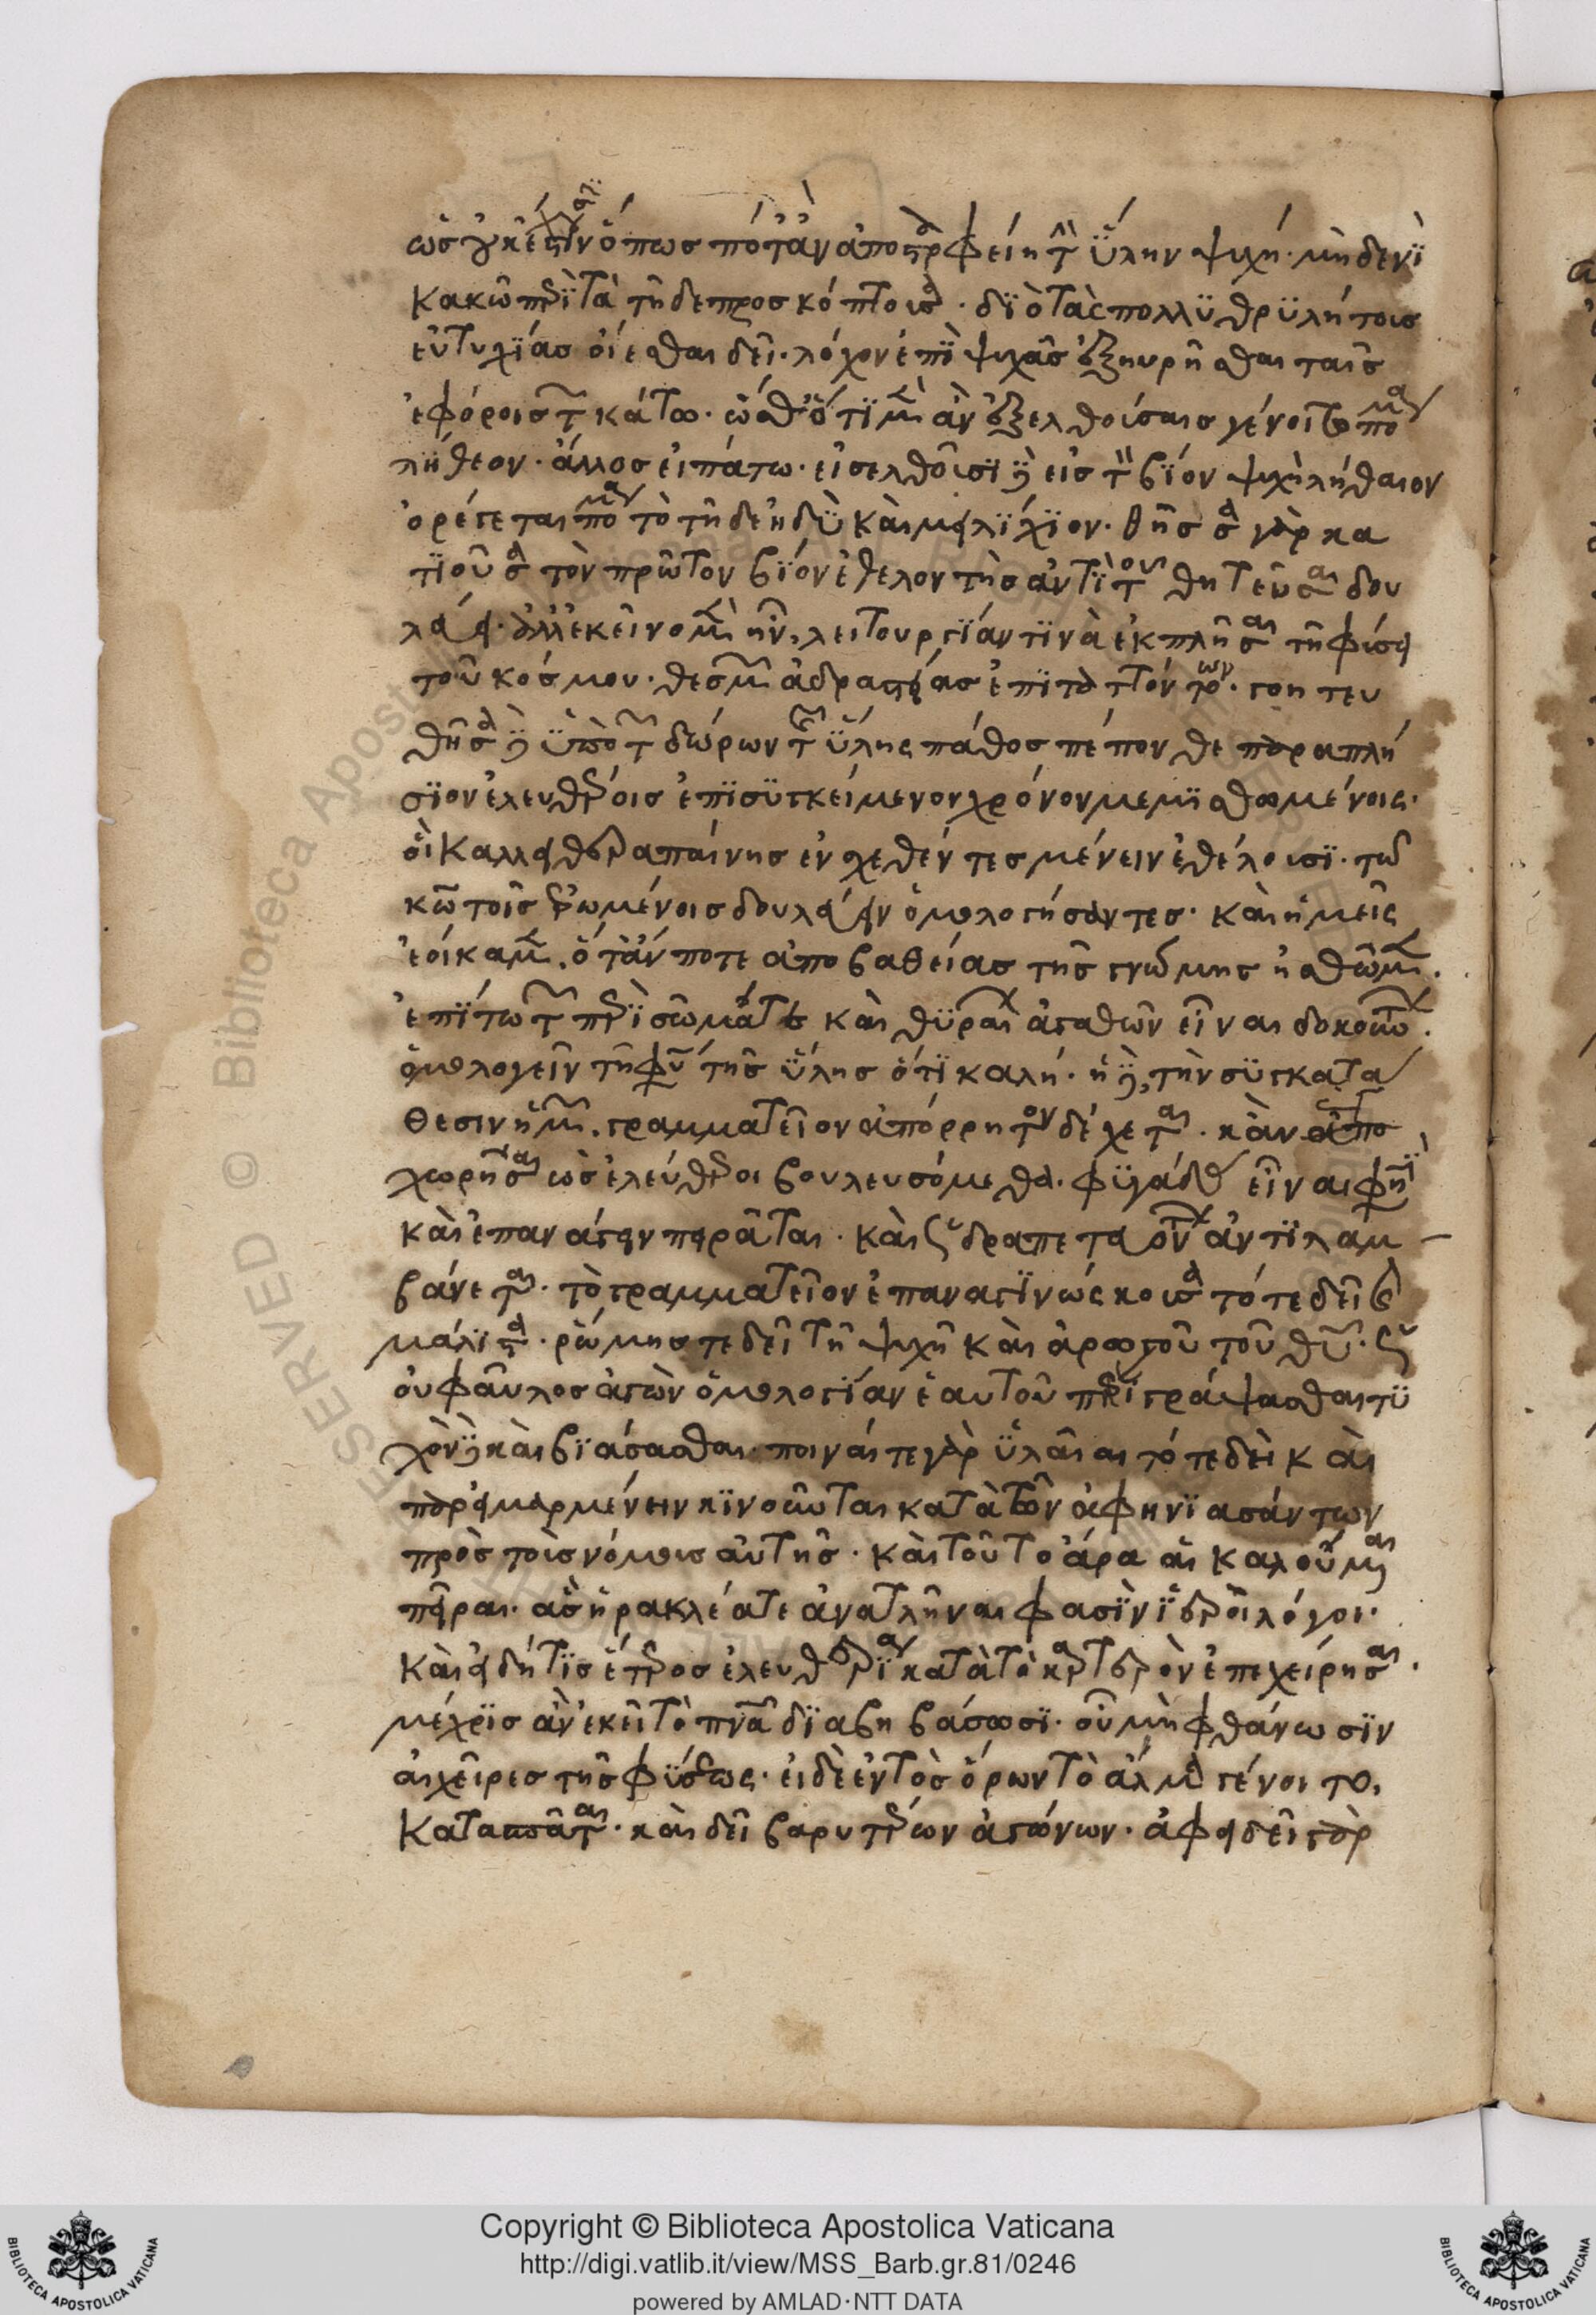 ὡς οὐκ ἔστιν ὅπως ποτ' ἂν ἀποστραφείη τὴν ὕλην ψυχή. μηδενὶ
κακῶ περὶ τὰ τῆδε προσκόπτουσα. διὸ τὰς πολλυθρυλήτοις
εὐτυχίας οἴεσθαι δεῖ. λόχον ἐπὶ ψυχὰς ἐξηυρῆσθαι ταῖς
ἐφόροις τῶν κάτω. ὥσθ' ὅτι μὲν ἂν ἐξελθούσαις γένοιτο πόμα
ληθεον. ἄλλος εἰπάτω. εἰσελθοῦσι δὲ εἰς τὸν βίον ψυχὴ ληθαιον
ὀρέγεται πόμα τὸ τῆδε ἡδὺ καὶ μειλίχιον. θῆσσα γὰρ κα
τιοῦσα τὸν πρῶτον βίον ἐθελοντὴς ἀντὶ τοῦ θητεῦσαι δου
λεύει. ἀλλ' ἐκεῖνο μὲν ἦν, λειτουργίαν τινὰ ἐκπλῆσαι τῆ φύσει
τοῦ κόσμου. θεσμῶν ἀδραστείας ἐπιταττόντων. γοητευ
θῆσα δὲ ὑπὸ τῶν δώρων τῆς ὕλης πάθος πέπονθε παραπλή
σιον ἐλευθέροις ἐπὶ συγκείμενον χρόνον μεμισθωμένοις.
οἳ κάλλει θεραπαίνης ἐνχεθέντες μένειν ἐθέλουσι. τῶ
κῶ τοῖς ἐρωμένοις δουλεύειν ὁμολογήσαντες. καὶ ἡμεῖς
ἐοίκαμεν. ὅτάν ποτε ἀπο βαθείας τῆς γνώμης ἡσθῶμεν.
ἐπὶ τω τῶν περὶ σῶμά τε καὶ θύραθεν ἀγαθῶν εἶναι δοκούντων.
ὁμολογεῖν τῆ φύσει τῆς ὕλης ὅτι καλή. ἡ δὲ, τὴν συγκατα
θεσιν ἡμῶν. γραμματεῖον ἀπόρρητον δέχεται. κἂν ἀπο
χωρῆσαι ὡς ἐλεύθεροι βουλευσόμεθα. φυγάδας εἶναι φησὶ
καὶ ἐπανάγειν πειρᾶται. καὶ ὡς δραπετῶν ἀντιλαμ
βάνεται. τὸ γραμματεῖον ἐπαναγινώσκουσα τότε δεῖ
μάλιστα. ρώμης τε δεῖ τῆ ψυχῆ καὶ ἀρωγοῦ τοῦ θεοῦ.
οὐ φαῦλος ἀγὼν ὁμολογίαν ἑαυτοῦ περιγράψασθαι τυ
χὸν δὲ καὶ βιάσασθαι. ποιναί τε γὰρ ὑλαῖαι τότε δεὶ καὶ
παρ' εἱμαρμένειν κινοῦνται κατὰ τῶν ἀφηνιασάντων
πρὸς τοῖς νόμοις αὐτῆς. καὶ τοῦτο ἄρα αἱ καλούμεναι
πεῖραι. ἃς ἡρακλέα τε ἀνατλῆναι φασὶν ἱεροὶ λόγοι.
καὶ εἰδήτις ἕτερος ἐλευθερίαν κατὰ τὸ καρτερὸν ἐπεχείρησαι.
μέχρις ἂν ἐκεῖ τὸ πνεῦμα διαβηβάσωσι. οὗ μὴ φθάνωσιν
αἱ χεῖρες τῆς φύσεως. εἰ δὲ ἐντὸς ὅρων τὸ ἅλμα γένοιτο,
κατασπᾶται. καὶ δεῖ βαρυτέρων ἀγώνων. ἀφειδεῖ γὰρ
Copyright © Biblioteca Apostolica Vaticana
http://digi.vatlib.it/view/MSS_Barb.gr.81/0246
powered by AMLAD·NTT DATA